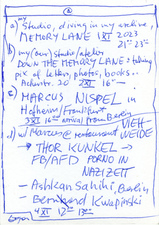 a) my
Studio, diving in my archive,
MEMORY LANE 1 XI 2023
21 23
b) my (own) studio/atelier
DOWN THE MEMORY LANE: taking
pix of letters, photos, books..
2 XI 16
c) MARCUS NISPEL in
Hofheim/Frankfurt
3 XI 16 arrival from Berlin
d) w/ Marcus @ restaurant VIEH-
WEIDE
→ THOR KUNKEL →
FB/AFD PORNO IN
NAZIZEIT
– Ashkan Sahihi, Berlin
– Bernhard Kwapinski
4 XI 12 13